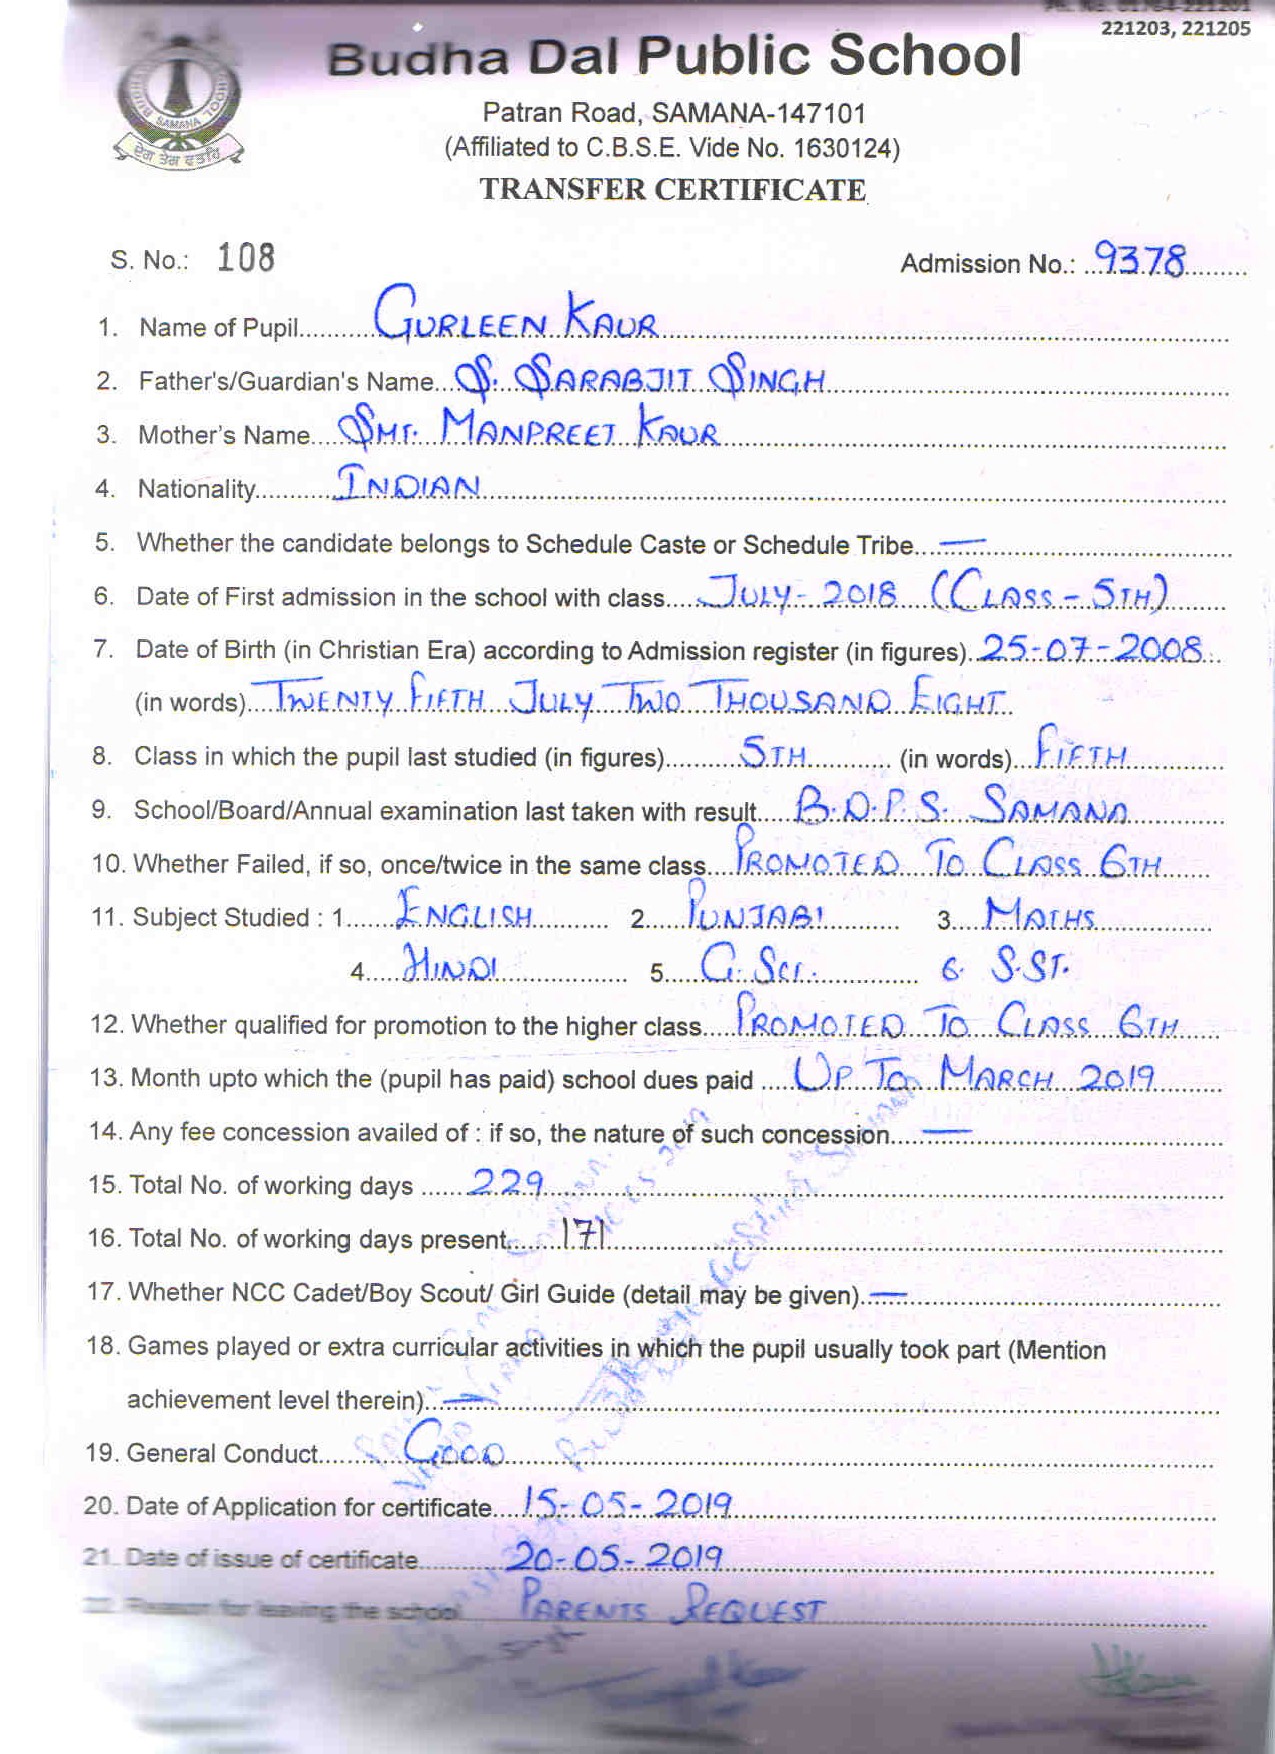 221203, 221205
Budha Dal Public School
Patran Road, SAMANA-147101
(Affiliated to C.B.S.E. Vide No. 1630124)
SAMANA
ਦੇਗ ਤੇਗ ਫਤਹਿ
TRANSFER CERTIFICATE
S. No.: 108 Admission No.: 9378
1. Name of Pupil GURLEEN KAUR
2. Father's/Guardian's Name S. SARABJIT SINGH
3. Mother's Name SMT. MANPREET KAUR
4. Nationality INDIAN
5. Whether the candidate belongs to Schedule Caste or Schedule Tribe —
6. Date of First admission in the school with class JULY - 2018 (CLASS - 5TH)
7. Date of Birth (in Christian Era) according to Admission register (in figures) 25-07-2008
(in words) TWENTY FIFTH JULY TWO THOUSAND EIGHT
8. Class in which the pupil last studied (in figures) 5TH (in words) FIFTH
9. School/Board/Annual examination last taken with result B.D.P.S. SAMANA
10. Whether Failed, if so, once/twice in the same class PROMOTED TO CLASS 6TH
11. Subject Studied : 1. ENGLISH 2. PUNJABI 3. MATHS
4. HINDI 5. G. SCI. 6. S.ST.
12. Whether qualified for promotion to the higher class PROMOTED TO CLASS 6TH
13. Month upto which the (pupil has paid) school dues paid UP TO MARCH 2019
14. Any fee concession availed of : if so, the nature of such concession —
15. Total No. of working days 229
16. Total No. of working days present 171
17. Whether NCC Cadet/Boy Scout/ Girl Guide (detail may be given) —
18. Games played or extra curricular activities in which the pupil usually took part (Mention
achievement level therein) —
19. General Conduct GOOD
20. Date of Application for certificate 15-05-2019
21. Date of issue of certificate 20-05-2019
22. Reason for leaving the school PARENTS REQUEST